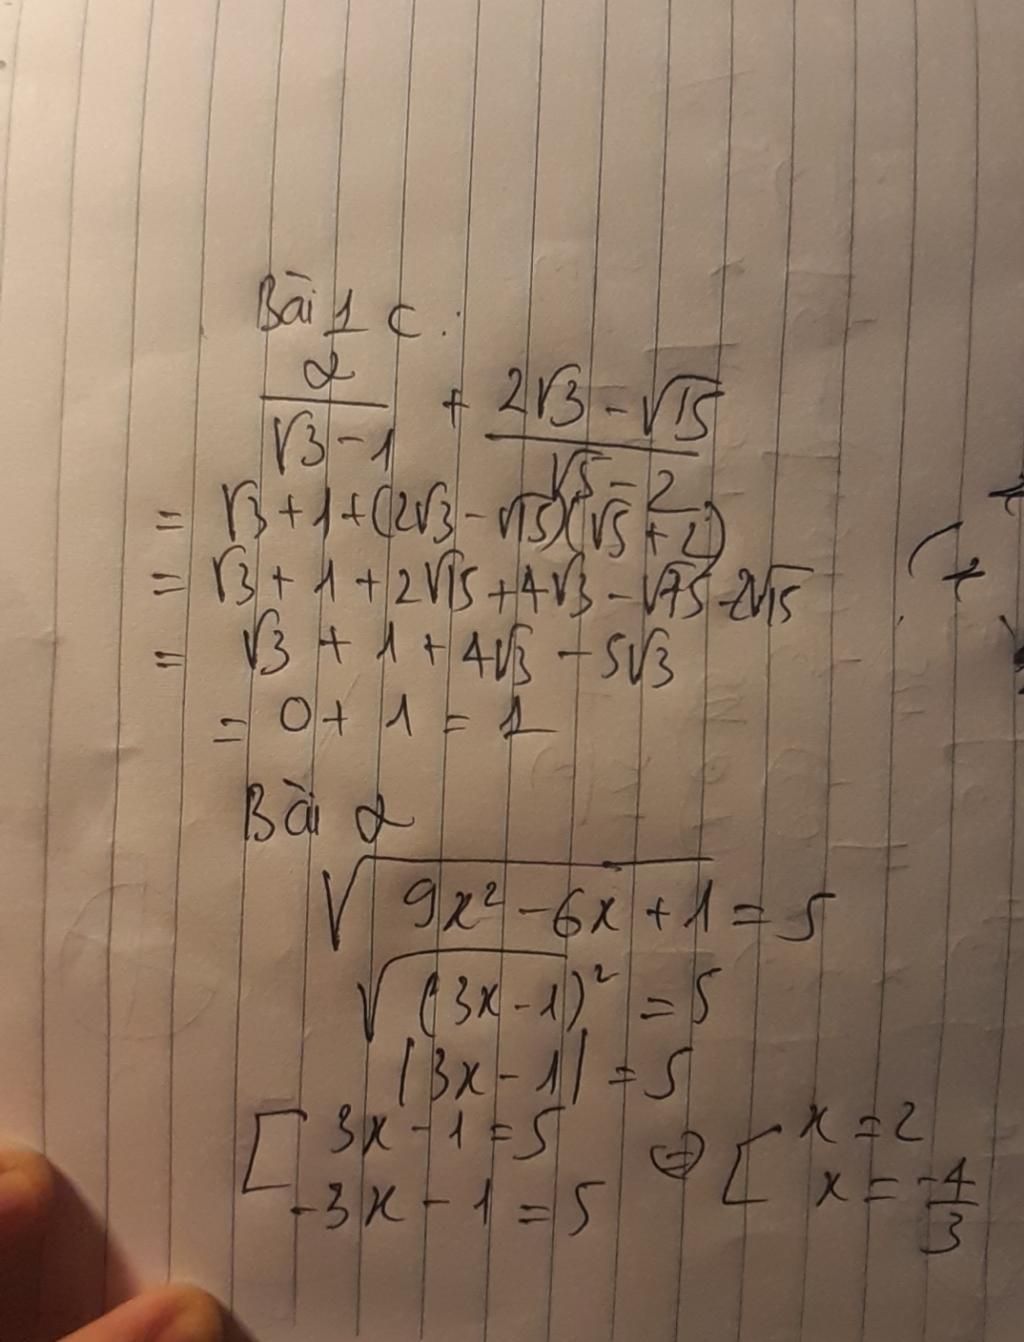 Bài 1 c.
2/(√3 - 1) + (2√3 - √15)/(√5 - 2)
= √3 + 1 + (2√3 - √15)(√5 + 2)
= √3 + 1 + 2√15 + 4√3 - √75 - 2√15
= √3 + 1 + 4√3 - 5√3
= 0 + 1 = 1
Bài 2
√(9x² - 6x + 1) = 5
√(3x - 1)² = 5
|3x - 1| = 5
[ 3x - 1 = 5 ⇔ [ x = 2
-3x - 1 = 5 x = -4/3